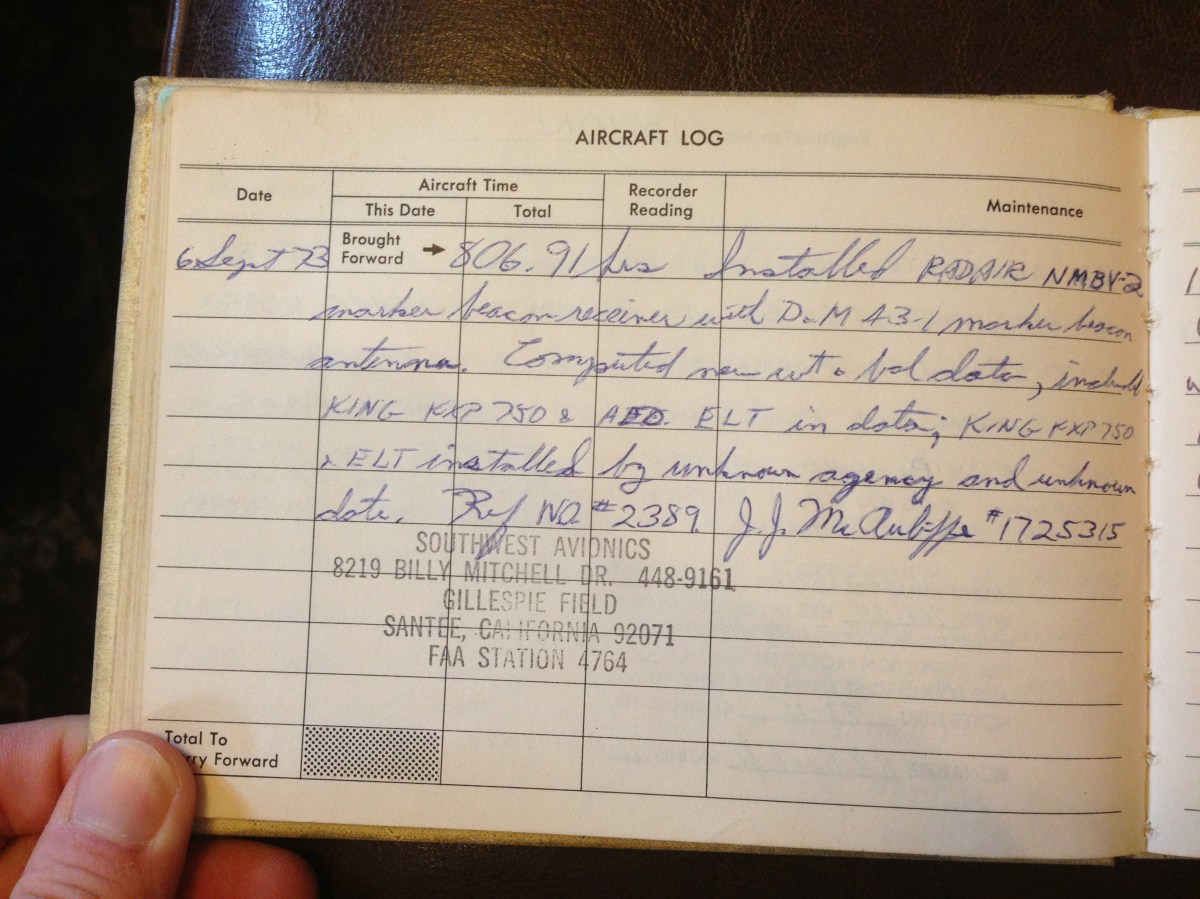 AIRCRAFT LOG
Date Aircraft Time Recorder Reading Maintenance
This Date Total
6 Sept 73 Brought Forward → 806.91 hrs Installed RADAIR NMBV-2
marker beacon receiver with D&M 43-1 marker beacon
antenna. Computed new wt & bal data, includ
KING KXP 750 & ELT in data; KING KXP 750
& ELT installed by unknown agency and unknown
date. Ref WO #2389 J.J. #1725315
SOUTHWEST AVIONICS
8219 BILLY MITCHELL DR. 448-9161
GILLESPIE FIELD
SANTEE, CALIFORNIA 92071
FAA STATION 4764
Total To
rry Forward